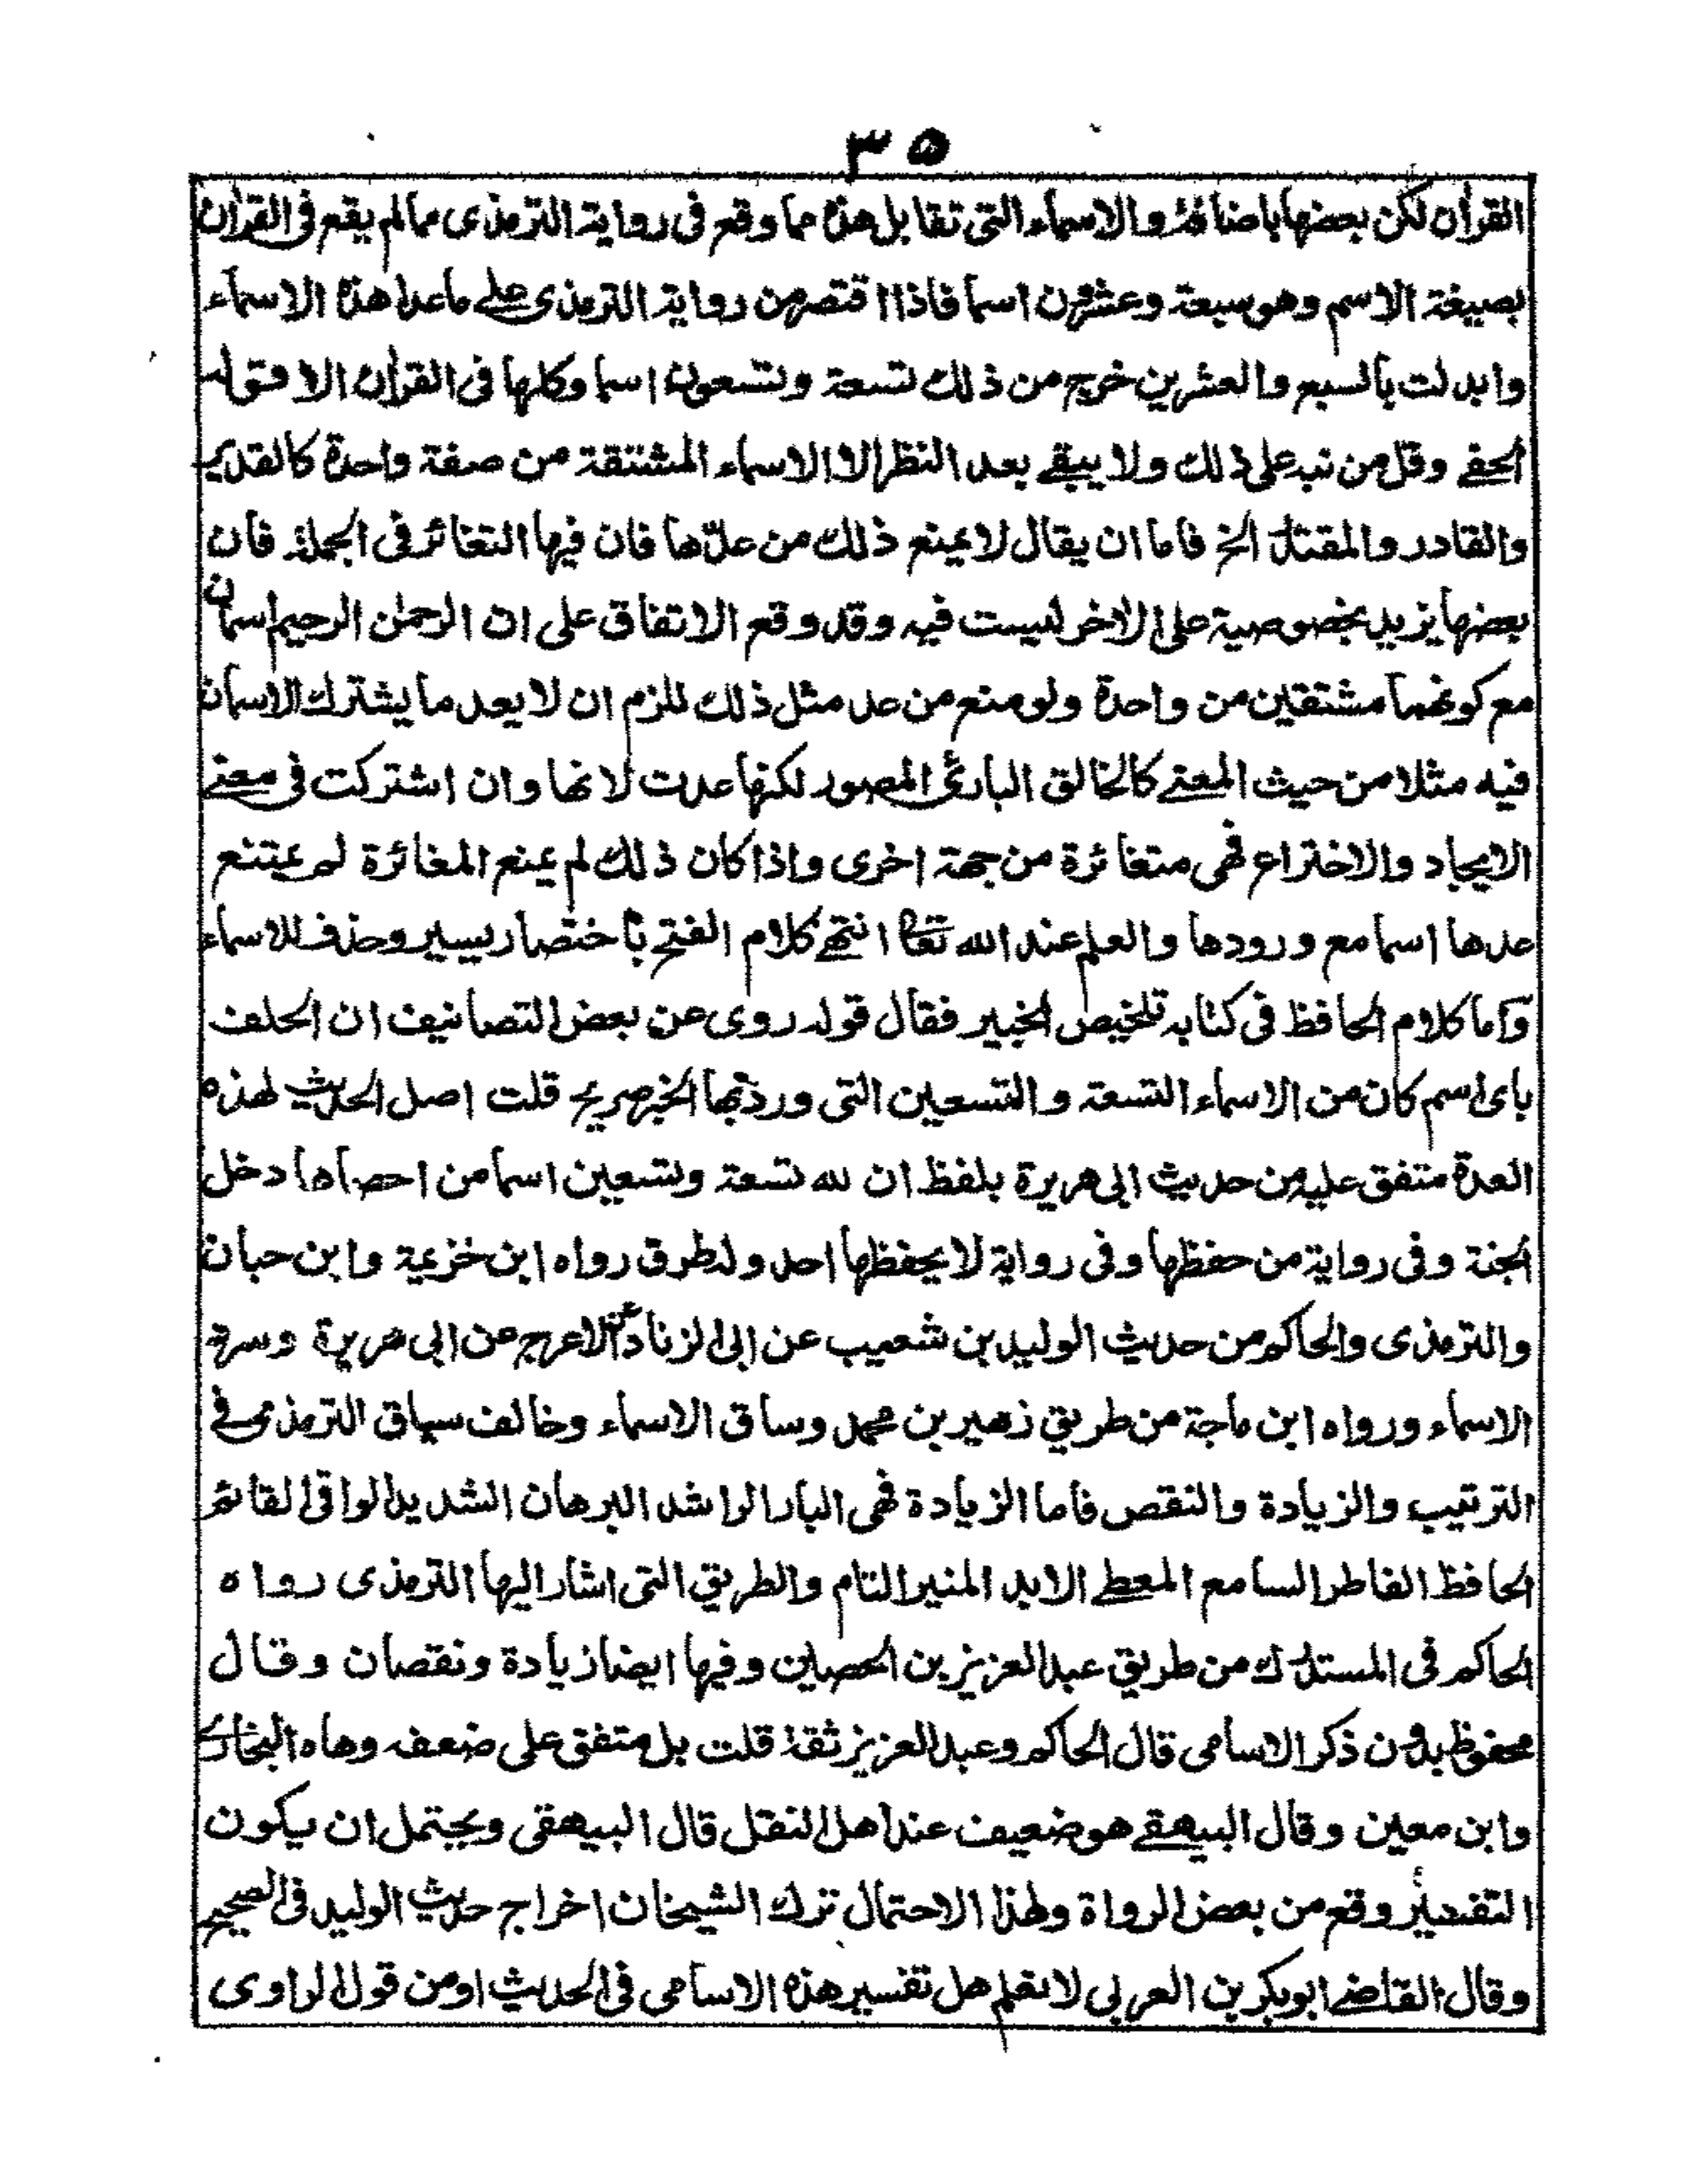 ٣٥
القرأن لكن بعضها باضافة والاسماء التى تقابل هذه مما وقع فى رواية الترمذى مما لم يقع فى القرأن
بصيغة الاسم وهو سبعة وعشرون اسما فاذا اقتصر من رواية الترمذى على ما عدا هذه الاسماء
وابدلت بالسبع والعشرين خرج من ذلك تسعة وتسعون اسما وكلها فى القرأن الا قوله
الحفى وقل من نبه على ذلك ولا يبقى بعد النظر الا الاسماء المشتقة من صفة واحدة كالقدير
والقادر والمقتدر الخ فاما ان يقال لا يمنع ذلك من عدّها فان فيها التغائر فى الجملة فان
بعضها يزيد بخصوصية على الأخر ليست فيه وقد وقع الاتفاق على ان الرحمٰن الرحيم اسمان
مع كونهما مشتقين من واحدة ولو منع من عد مثل ذلك للزم ان لا يعد ما يشترك الاسمان
فيه مثلا من حيث المعنى كالخالق البارئ المصور لكنها عدت لانها وان اشتركت فى معنى
الايجاد والاختراع فهى متغائرة من جهة اخرى واذا كان ذلك لم يمنع المغائرة لم يمتنع
عدها اسما مع ورودها والعلم عند الله تعالى انتهى كلام الفتح باختصار يسير وحذف للاسماء
وأما كلام الحافظ فى كتابه تلخيص الخبير فقال قوله روى عن بعض التصانيف ان الحلف
باى اسم كان من الاسماء التسعة والتسعين التى ورد بها الخبر صريح قلت اصل الحديث لهذه
العدة متفق عليه من حديث ابى هريرة بلفظ ان لله تسعة وتسعين اسما من احصاها دخل
الجنة وفى رواية من حفظها وفى رواية لا يحفظها احد وله طرق رواه ابن خزيمة وابن حبان
والترمذى والحاكم من حديث الوليد بن شعيب عن ابى الزناد عن الاعرج عن ابى هريرة وسرد
الاسماء ورواه ابن ماجة من طريق زهير بن محمد وساق الاسماء وخالف سياق الترمذى فى
الترتيب والزيادة والنقص فاما الزيادة فهى البار الراشد البرهان الشديد الواقى القائم
الحافظ الفاطر السامع المعطى الابد المنير التام والطريق التى اشار اليها الترمذى رواه
الحاكم فى المستدرك من طريق عبد العزيز بن الحصين وفيها ايضا زيادة ونقصان وقال
محفوظ بدون ذكر الاسامى قال الحاكم وعبد العزيز ثقة قلت بل متفق على ضعفه وهاه البخارى
وابن معين وقال البيهقى هو ضعيف عند اهل النقل قال البيهقى ويحتمل ان يكون
التفسير وقع من بعض الرواة ولهذا الاحتمال ترك الشيخان اخراج حديث الوليد فى الصحيح
وقال القاضى ابو بكر بن العربى لا نعلم هل تفسير هذه الاسامى فى الحديث او من قول الراوى